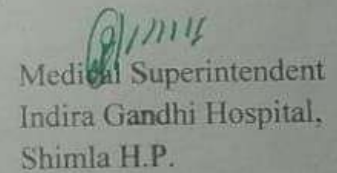 Medical Superintendent
Indira Gandhi Hospital,
Shimla H.P.